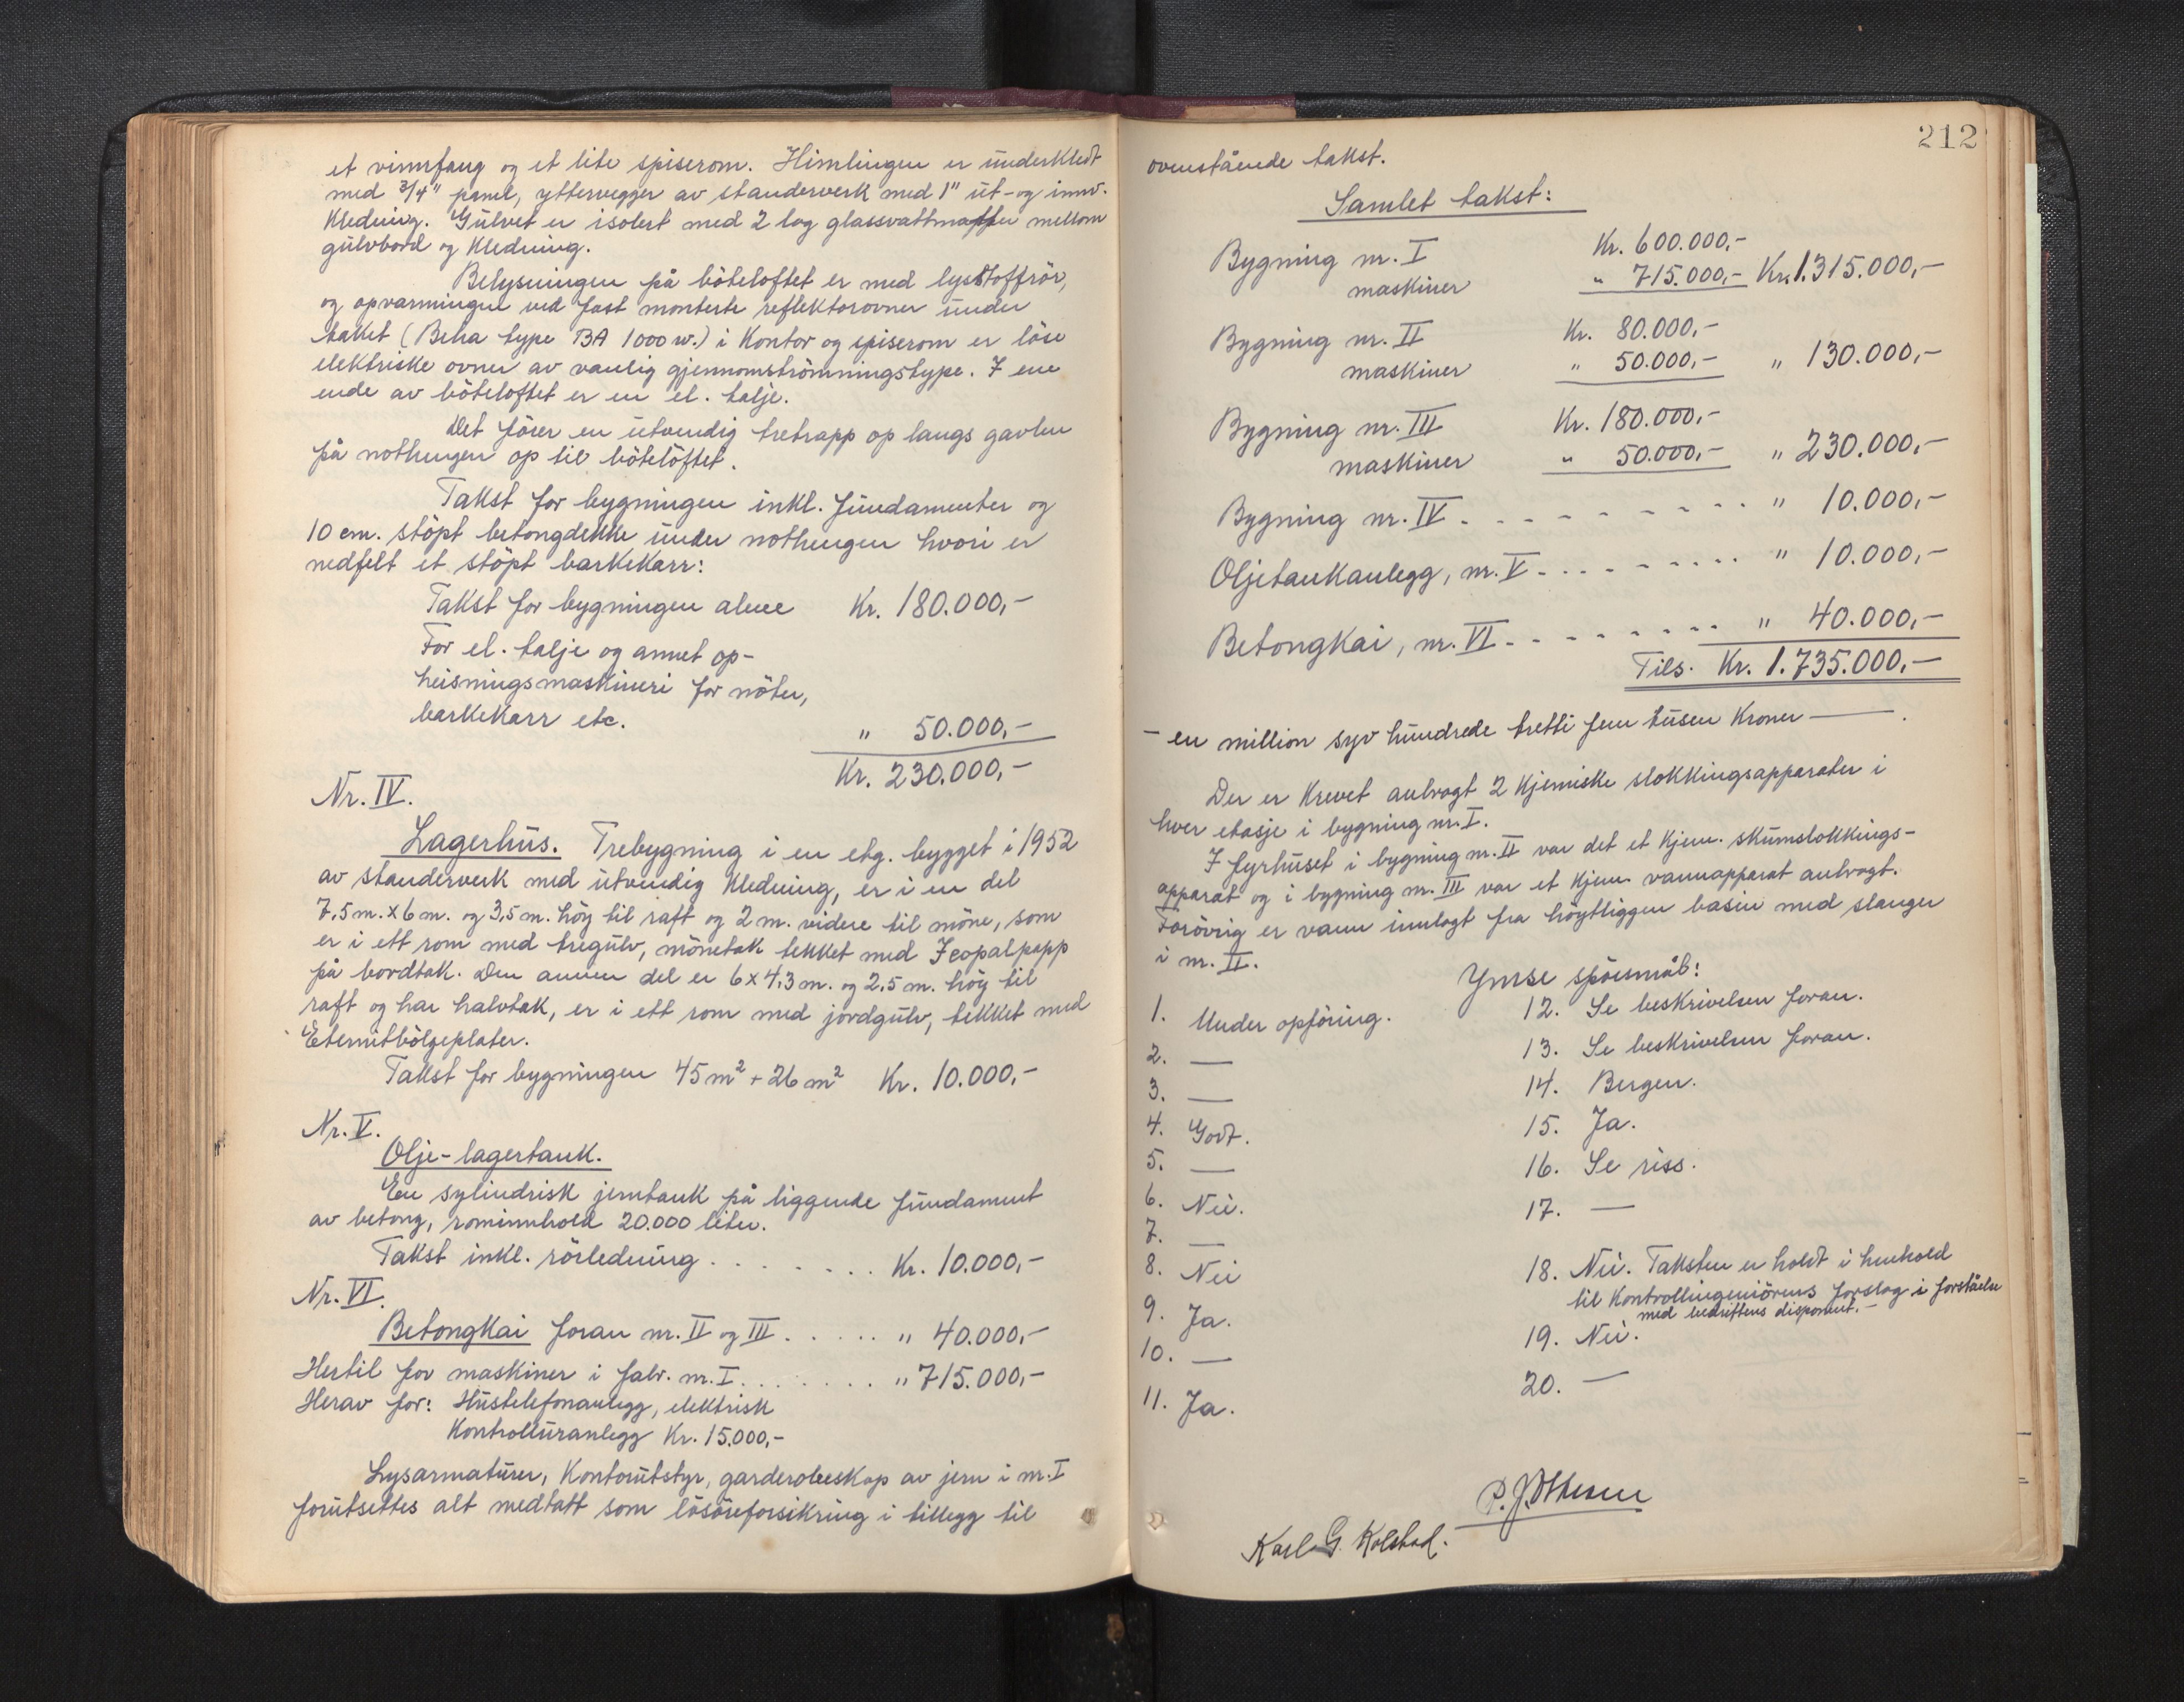 et vinnfang og et lite spiserom. Himlingen er underkledt
med 3/4" panel, yttervegger av standerverk med 1" ut- og innv.
kledning. Gulvet er isolert med 2 lag glassvattmatter mellom
gulvbord og kledning.
Belysningen på böteloftet er med lysstoffrör,
og opvarmingen ved fast monterte reflektorovner under
taket (Beha type BA 1000 w.) i kontor og spiserom er löse
elektriske ovner av vanlig gjennomströmningstype. I ene
ende av böteloftet er en el. talje.
Det förer en utvendig tretrapp op langs gavlen
på nothengen op til böteloftet.
Takst for bygningen inkl. fundamenter og
10 cm. stöpt betongdekke under nothengen hvori er
nedfelt et stöpt barkekarr:
Takst for bygningen alene Kr. 180.000,-
For el. talje og annet op-
heisningsmaskineri for nöter,
barkekarr etc. " 50.000,-
Kr. 230.000,-
Nr. IV.
Lagerhus. Trebygning i en etg. bygget i 1952
av standerverk med utvendig kledning, er i en del
7,5 m. x 6 m. og 3,5 m. höy til raft og 2 m. videre til möne, som
er i ett rom med tregulv, mönetak tekket med Icopalpapp
på bordtak. Den annen del er 6 x 4,3 m. og 2,5 m. höy til
raft og har halvtak, er i ett rom med jordgulv, tekket med
Eternitbölgeplater.
Takst for bygningen 45 m² + 26 m² Kr. 10.000,-
Nr. V.
Olje-lagertank.
En sylindrisk jerntank på liggende fundament
av betong, rominnhold 20.000 liter.
Takst inkl. rörledning . . . . . . . Kr. 10.000,-
Nr. VI.
Betongkai foran nr. II og III . . . . . " 40.000,-
Hertil for maskiner i fabr. nr. I. . . . . . . . " 715.000,-
Herav for: Hustelefonanlegg, elektrisk
kontrolluranlegg Kr. 15.000,-
Lysarmaturer, kontorutstyr, garderobeskap av jern i nr. I
forutsettes alt medtatt som lösöreforsikring i tillegg til
212
ovenstående takst.
Samlet takst:
Bygning nr. I Kr. 600.000,-
maskiner " 715.000,- Kr. 1.315.000,-
Bygning nr. II Kr. 80.000,-
maskiner " 50.000,- " 130.000,-
Bygning nr. III Kr. 180.000,-
maskiner " 50.000,- " 230.000,-
Bygning nr. IV. - - - - - - - - - - " 10.000,-
Oljetankanlegg, nr. V - - - - - - - - - " 10.000,-
Betongkai, nr. VI - - - - - - - - - " 40.000,-
Tils. Kr. 1.735.000,-
- en million syv hundrede tretti fem tusen kroner — .
Der er krevet anbragt 2 kjemiske slokkingsapparater i
hver etasje i bygning nr. I.
I fyrhuset i bygning nr. II var det et kjem. skumslokkings-
apparat og i bygning nr. III var et kjem. vannapparat anbragt.
Forövrig er vann innlagt fra höytliggen basin med slanger
i nr. II.
Ymse spörsmål:
1. Under opföring.
2. —
3. —
4. Godt.
5. —
6. Nei.
7. —
8. Nei
9. Ja.
10. —
11. Ja.
12. Se beskrivelsen foran.
13. Se beskrivelsen foran.
14. Bergen.
15. Ja.
16. Se riss.
17. —
18. Nei. Taksten er holdt i henhold
til kontrollingeniörens forslag i forståelse
med bedriftens disponent. -
19. Nei.
20. —
P. J. Othesen
Karl G. Kolstad.